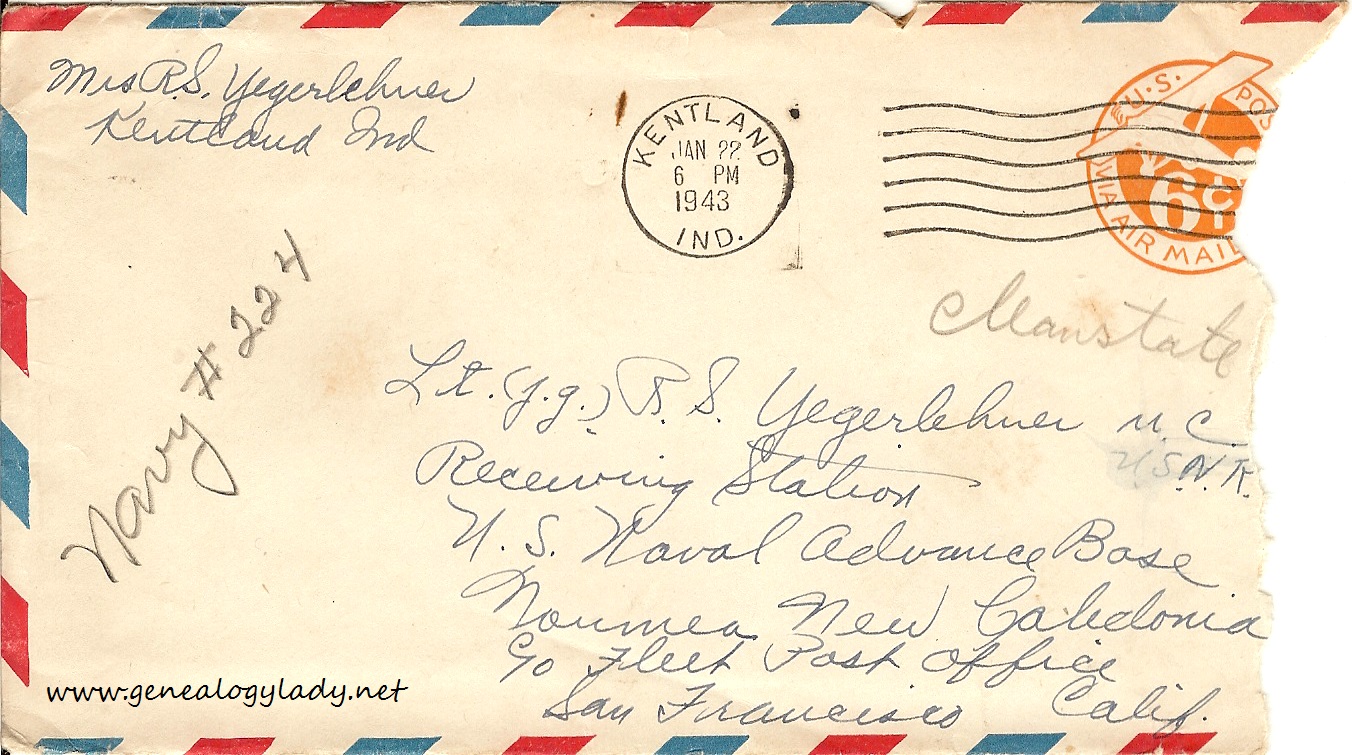 Mrs R.S. Yegerlehner
Kentland Ind
KENTLAND
JAN 22
6 PM
1943
IND.
U.S. POS
6¢
VIA AIR MAIL
Navy # 224
Lt. (j.g.) R. S. Yegerlehner M.C.
U.S.N.R.
Receiving Station
U. S. Naval Advance Base
Noumea New Caledonia
c/o Fleet Post Office
San Francisco Calif.
www.genealogylady.net